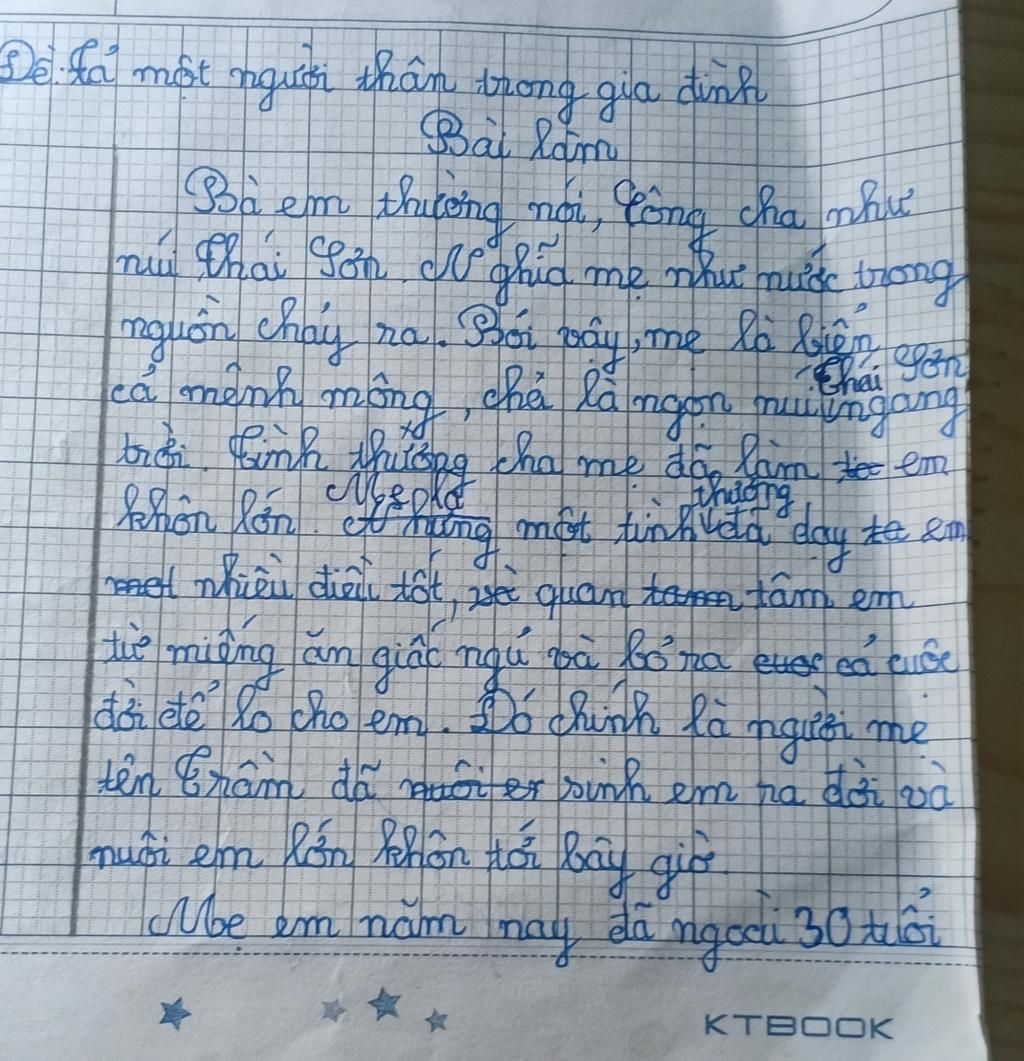 Đề: Tả một người thân trong gia đình
Bài làm
Bà em thường nói, Công cha như
núi Thái Sơn Nghĩa mẹ như nước trong
nguồn chảy ra. Bởi vậy, mẹ là biển
cả mênh mông, cha là ngọn núi Thái Sơn ngang
trời. Tình thương cha mẹ đã làm em
khôn lớn. Mẹ là một tình thương đã dạy em
nhiều điều tốt, quan tâm em
từ miếng ăn giấc ngủ và bỏ ra cả cuộc
đời để lo cho em. Đó chính là người mẹ
tên Trâm đã sinh em ra đời và
nuôi em lớn khôn tới bây giờ.
Mẹ em năm nay đã ngoài 30 tuổi
KTBOOK